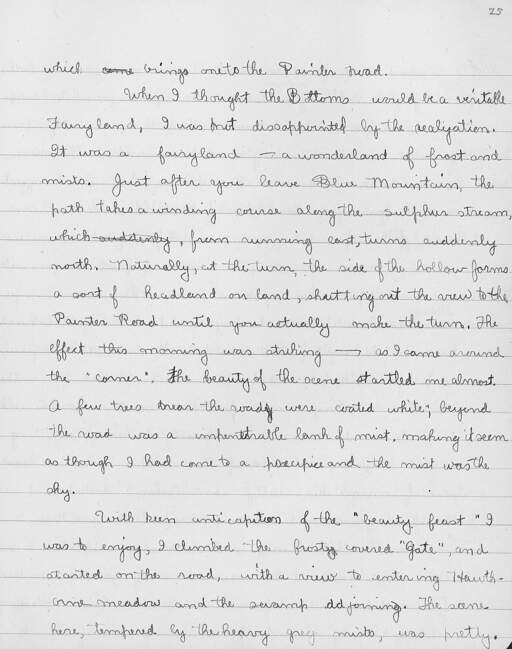 25
which came brings one to the Painter road.
When I thought the Bottoms would be a veritable
Fairyland, I was not dissappointed by the realization.
It was a fairyland — a wonderland of frost and
mists. Just after you leave Blue Mountain, the
path takes a winding course along the sulphur stream,
which suddenly, from running east, turns suddenly
north. Naturally, at the turn, the side of the hollow forms
a sort of headland on land, shutting out the view to the
Painter Road until you actually make the turn. The
effect this morning was striking — as I came around
the "corner". The beauty of the scene startled me almost.
A few trees near the road were coated white; beyond
the road was a impenetrable bank of mist, making it seem
as though I had come to a precipice and the mist was the
sky.
With keen anticaption of the "beauty feast" I
was to enjoy, I climbed the frosty covered "Gate", and
started on the road, with a view to entering Hauth-
orne meadow and the swamp adjoining. The scene
here, tempered by the heavy grey mists, was pretty.